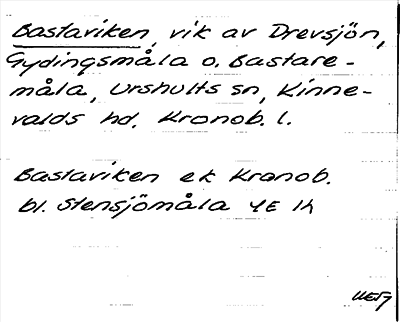 Bastaviken, vik av Drevsjön,
Gydingsmåla o. Bastare-
måla, Urshults sn, Kinne-
valds hd. Kronob. l.
Bastaviken ek Kronob.
bl. Stensjömåla 4E 1h